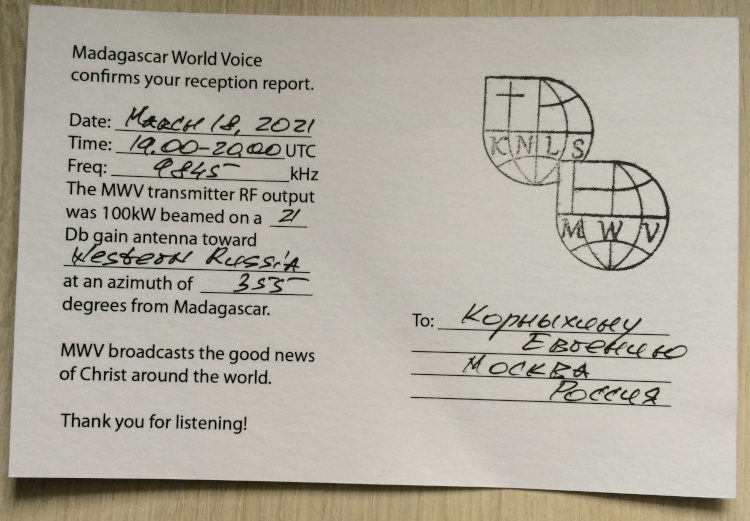 Madagascar World Voice
confirms your reception report.
Date: March 18, 2021
Time: 19.00-20.00 UTC
Freq: 9845 kHz
The MWV transmitter RF output
was 100kW beamed on a 21
Db gain antenna toward
Western Russia
at an azimuth of 355
degrees from Madagascar.
MWV broadcasts the good news
of Christ around the world.
Thank you for listening!
KNLS
MWV
To: Корныхину
Евгению
Москва
Россия